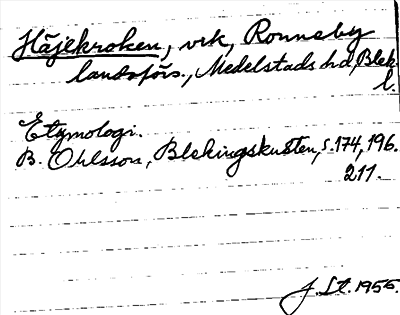 Häjekroken, vik, Ronneby
landsförs., Medelstads hd, Blek
l.
Etymologi.
B. Ohlsson, Blekingskusten, s. 174, 196.
211.
J. Lt. 1955.